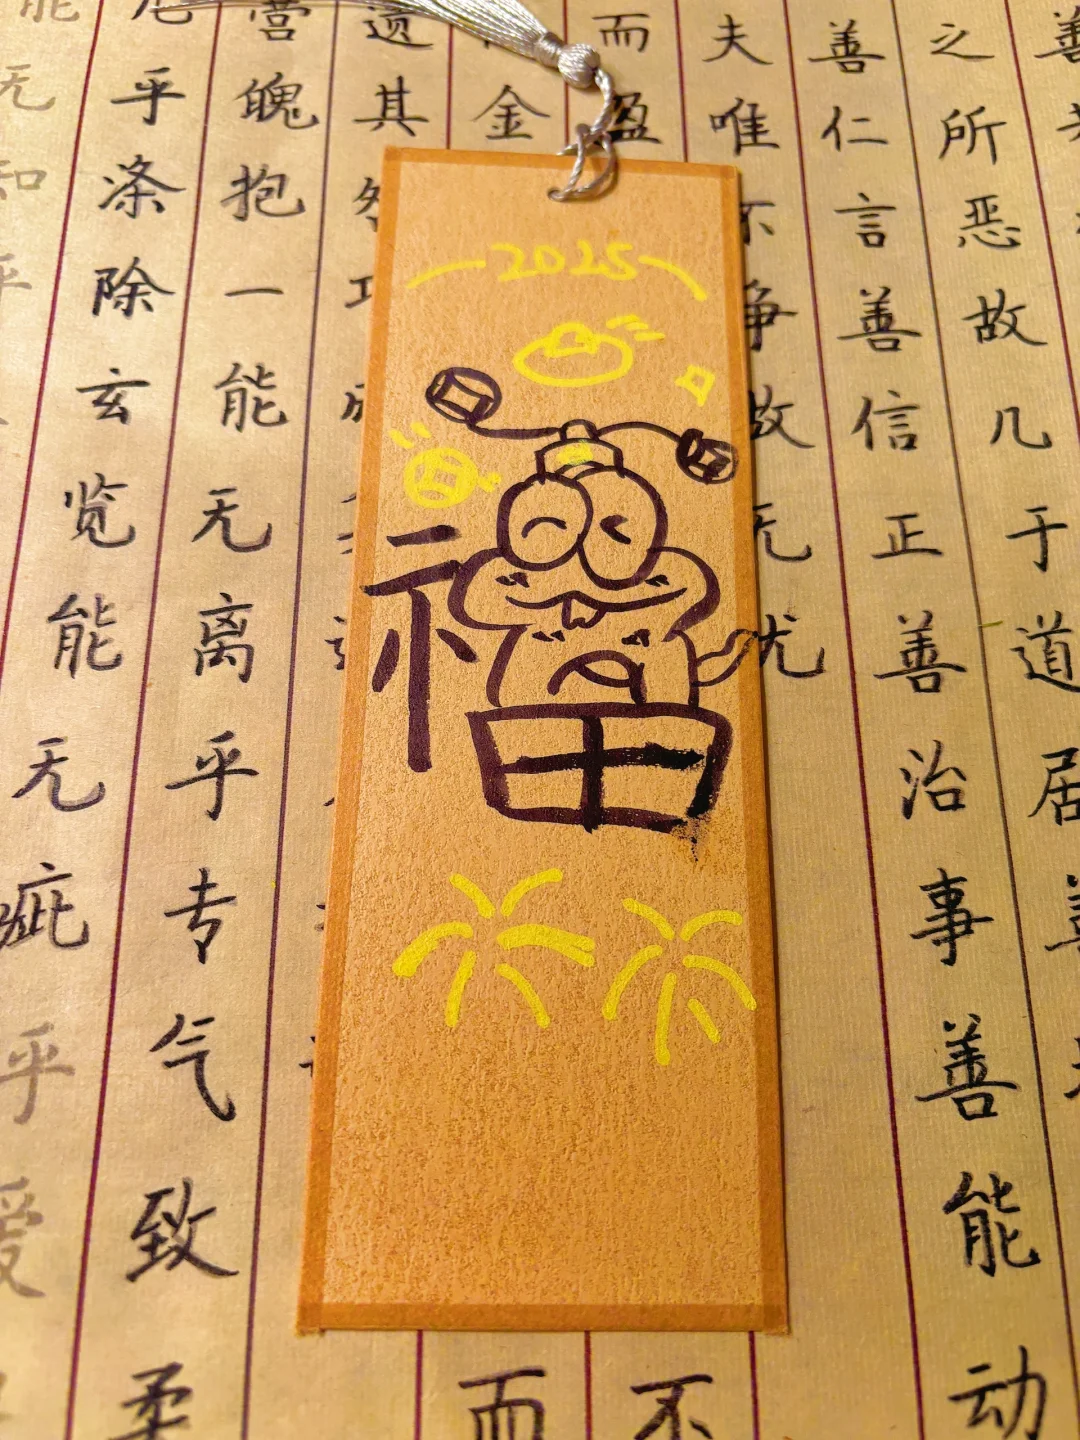 善
之所恶故几于道居善
善仁言善信正善治事善能动
夫唯不争故无尤
而盈不
金而
遗其
营魄抱一能无离乎专气致柔
乎涤除玄览能无疵乎爱
能无知乎
2025
福